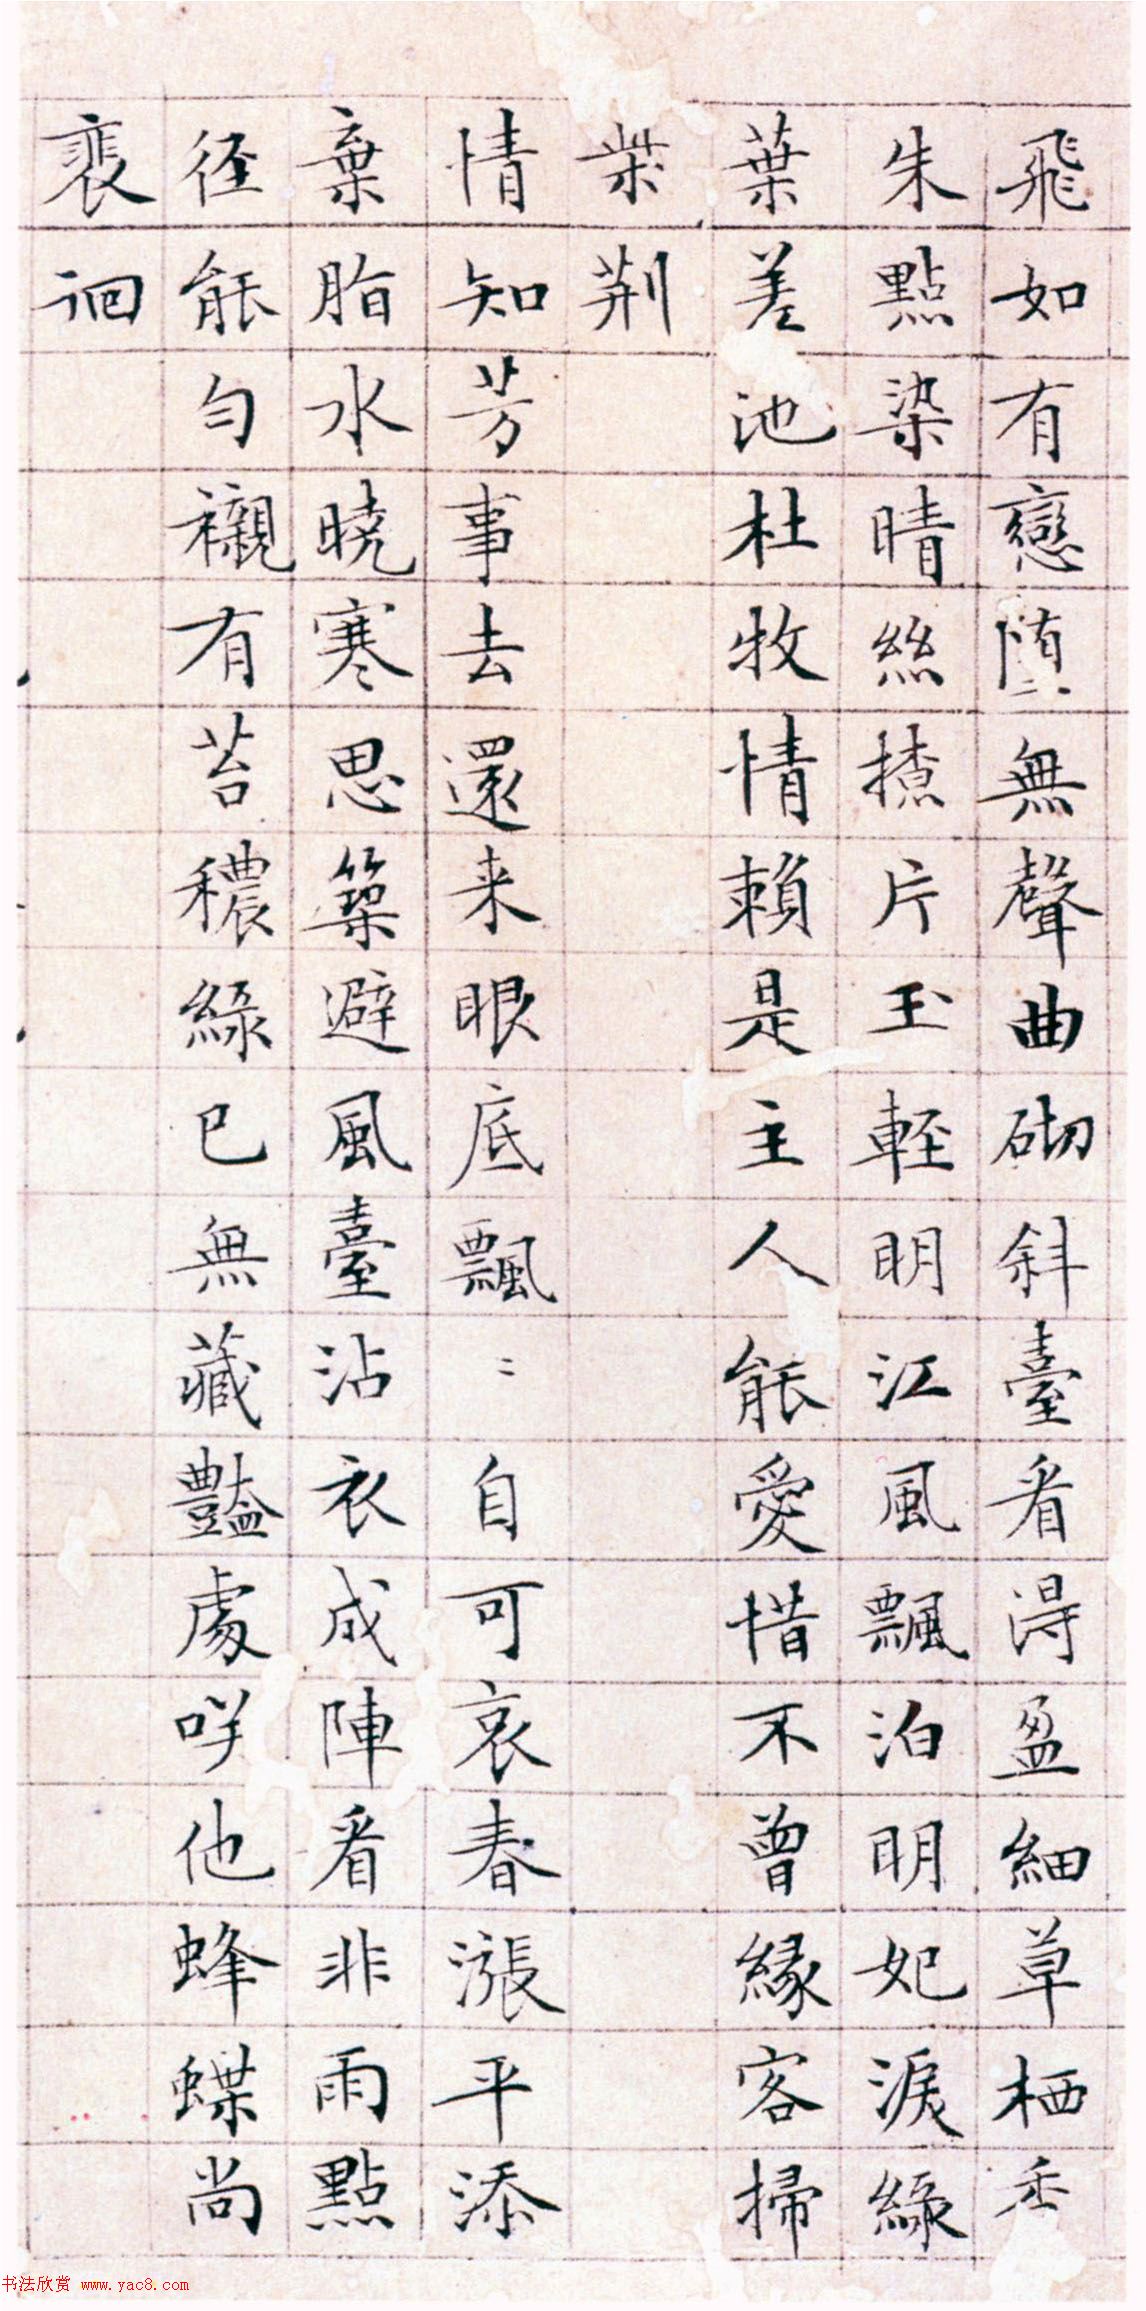 飛如有戀堕無聲曲砌斜臺看淂盈細草栖香
朱點染晴絲揸片玉輊明江風飄泊明妃淚綠
葉差池杜牧情賴是主人能愛惜不曾緣客掃
柴荆
情知芳事去還来眼底飄〻自可哀春漲平添
棄脂水曉寒思築避風臺沾衣成陣看非雨點
径能勻襯有苔穠綠已無藏豔處咲他蜂蝶尚
裵徊
书法欣赏 www.yac8.com